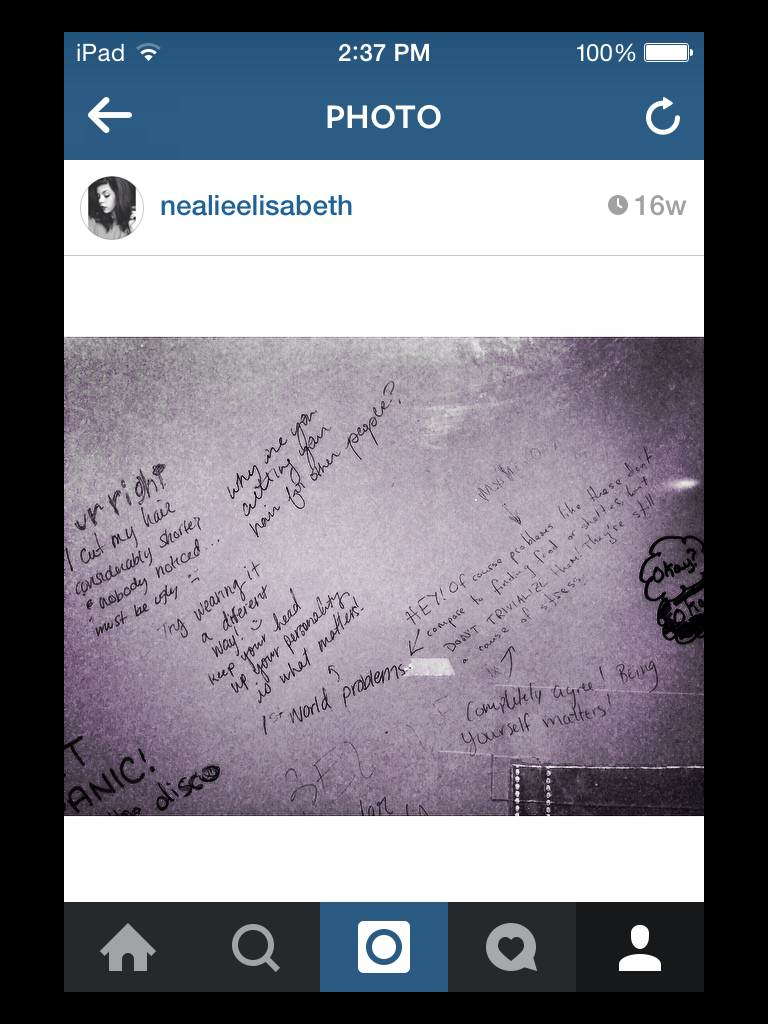 iPad
2:37 PM
100%
PHOTO
nealieelisabeth
16w
why are you
cutting your
hair for other people?
ur right
I cut my hair
considerably shorter
nobody noticed...
must be ugly :(
Try wearing it
a different
way! :)
keep your head
up your personality
is what matters!
1st world problems
HEY! Of course problems like these don't
compare to finding food or shelter, but
DON'T TRIVIALIZE them! They're still
a cause of stress.
Completely agree! Being
yourself matters!
Okay?
Oka
T
ANIC!
the disco